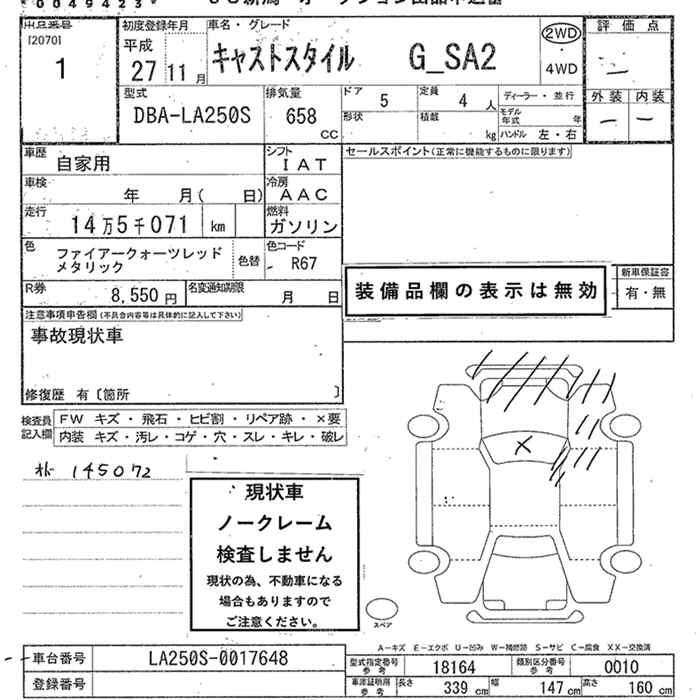 *0049423*
出品番号 初度登録年月 車名・グレード 評価点
[2070] 平成 キャストスタイル G_SA2 2WD
1 27 11月 4WD 一
型式 排気量 ドア 5 定員 4人 ディーラー・並行 外装 内装
DBA-LA250S 658 cc 形状 積載 kg モデル年式 年 ー ー
ハンドル 左・右
車歴 自家用 シフト IAT セールスポイント(正常に機能するものに限ります)
車検 年 月( 日) 冷房 AAC
走行 14万5千071 km 燃料 ガソリン
色 ファイアークォーツレッド 色替 色コード
メタリック R67
新車保証書
R券 8,550円 名変通知期限 月 日 装備品欄の表示は無効 有・無
注意事項申告欄(不具合内容等は具体的に記入して下さい)
事故現状車
修復歴 有〔箇所 〕
検査員 FW キズ・飛石・ヒビ割・リペア跡・×要
記入欄 内装 キズ・汚レ・コゲ・穴・スレ・キレ・破レ
145072
現状車
ノークレーム
検査しません
現状の為、不動車になる
場合もありますので
ご注意ください。
スペア
A-キズ E-エクボ U-凹み W-補修跡 S-サビ C-腐食 XX-交換済
車台番号 LA250S-0017648 型式指定番号参考 18164 類別区分番号参考 0010
登録番号 車庫証明用参考 長さ 339cm 幅 147cm 高さ 160cm